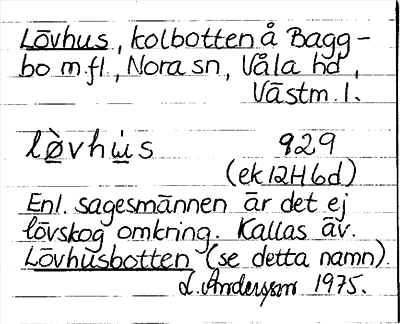 Lövhus, kolbotten å Bagg-
bo m.fl., Nora sn, Våla hd,
Västm. l.
lò̲vhu̲̇s 929
(ek 12H6d)
Enl. sagesmannen är det ej
lövskog omkring. Kallas äv.
Lövhusbotten (se detta namn).
L. Andersson 1975.